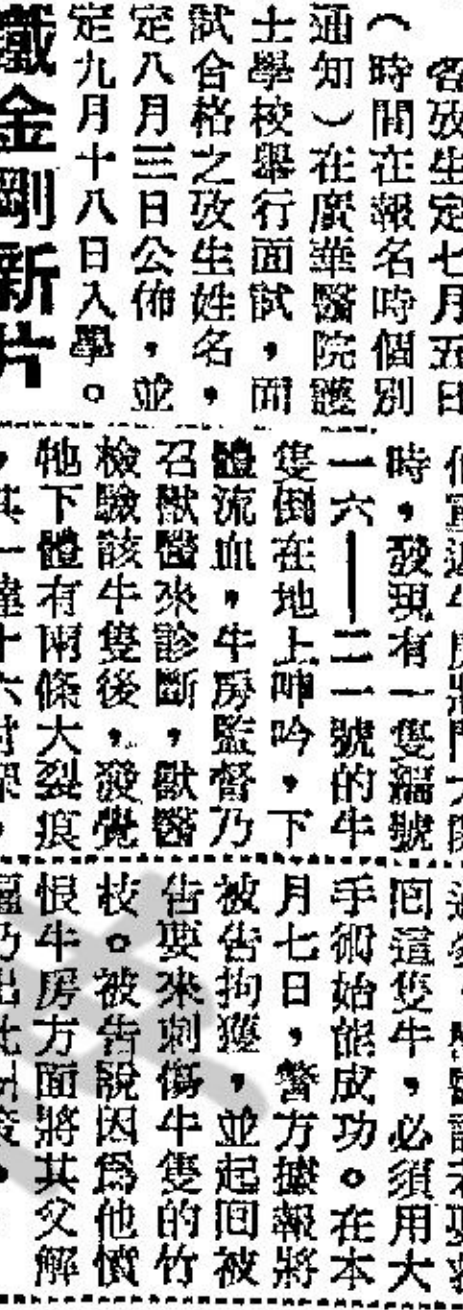 各攷生定七月五日
（時間在報名時個別
通知）在廣華醫院護
士學校舉行面試，面
試合格之攷生姓名，
定八月三日公佈，並
定九月十八日入學。
鐵金剛新片
時，發現有一隻編號
一六——二一號的牛
隻倒在地上呻吟，下
體流血，牛房監督乃
召獸醫來診斷，獸醫
檢驗該牛隻後，發覺
牠下體有兩條大裂痕
，其一達十六吋深，
囘這隻牛，必須用大
手術始能成功。在本
月七日，警方據報將
被告拘獲，並起囘被
告要來刺傷牛隻的竹
枝。被告說因爲他憤
恨牛房方面將其父解
乃出此